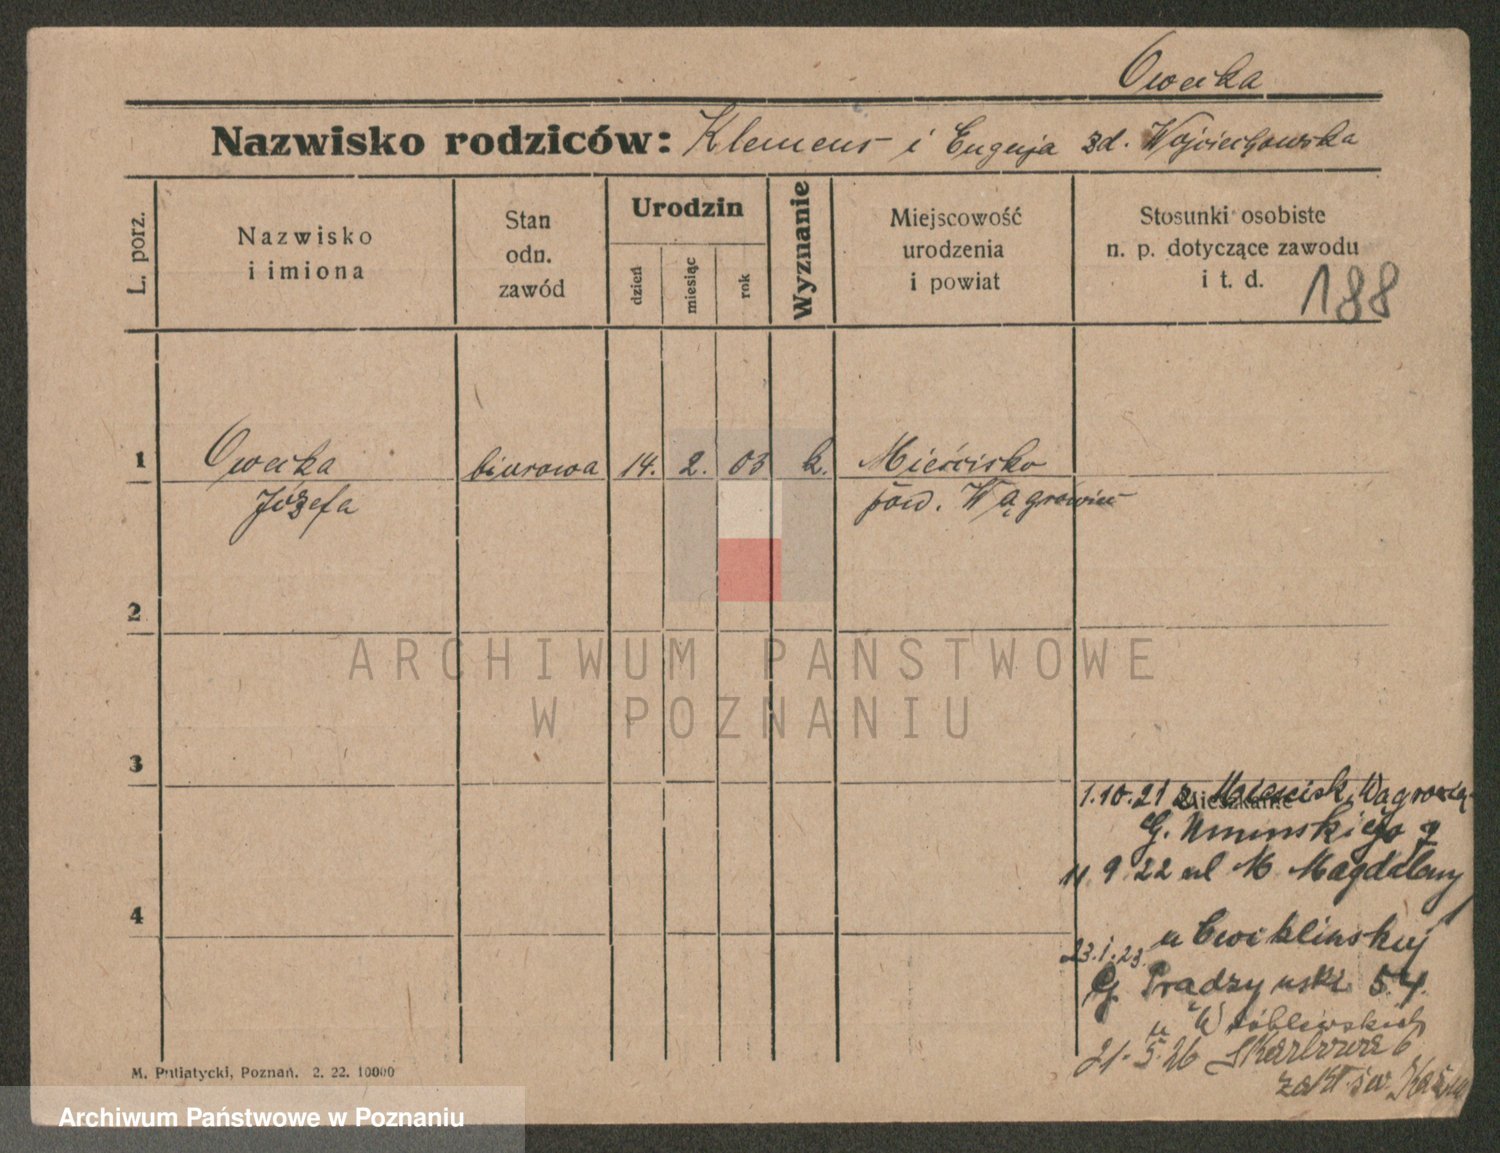 Owecka
Nazwisko rodziców: Klemens i Eugenja zd. Wojciechowska
L. porz.
Nazwisko
i imiona
Stan
odn.
zawód
Urodzin
dzień
miesiąc
rok
Wyznanie
Miejscowość
urodzenia
i powiat
Stosunki osobiste
n. p. dotyczące zawodu
i t. d.
188
1
Owecka biurowa 14. 2. 03 k. Mieścisko
Józefa pow. Wągrowiec
2
ARCHIWUM PAŃSTWOWE
W POZNANIU
3
Mieszkanie
1.10.21 z Mieścisk, Wągrowia
G. 9
11 9 22 ul M Magdaleny 1
u Ćwiklińskiej
23.1.23.
G. Prądzyńsk 54.
u Wróblewskich
21.5.26 Skarbowa 6
zakł św
4
M. Putiatycki, Poznań. 2. 22. 10000
Archiwum Państwowe w Poznaniu